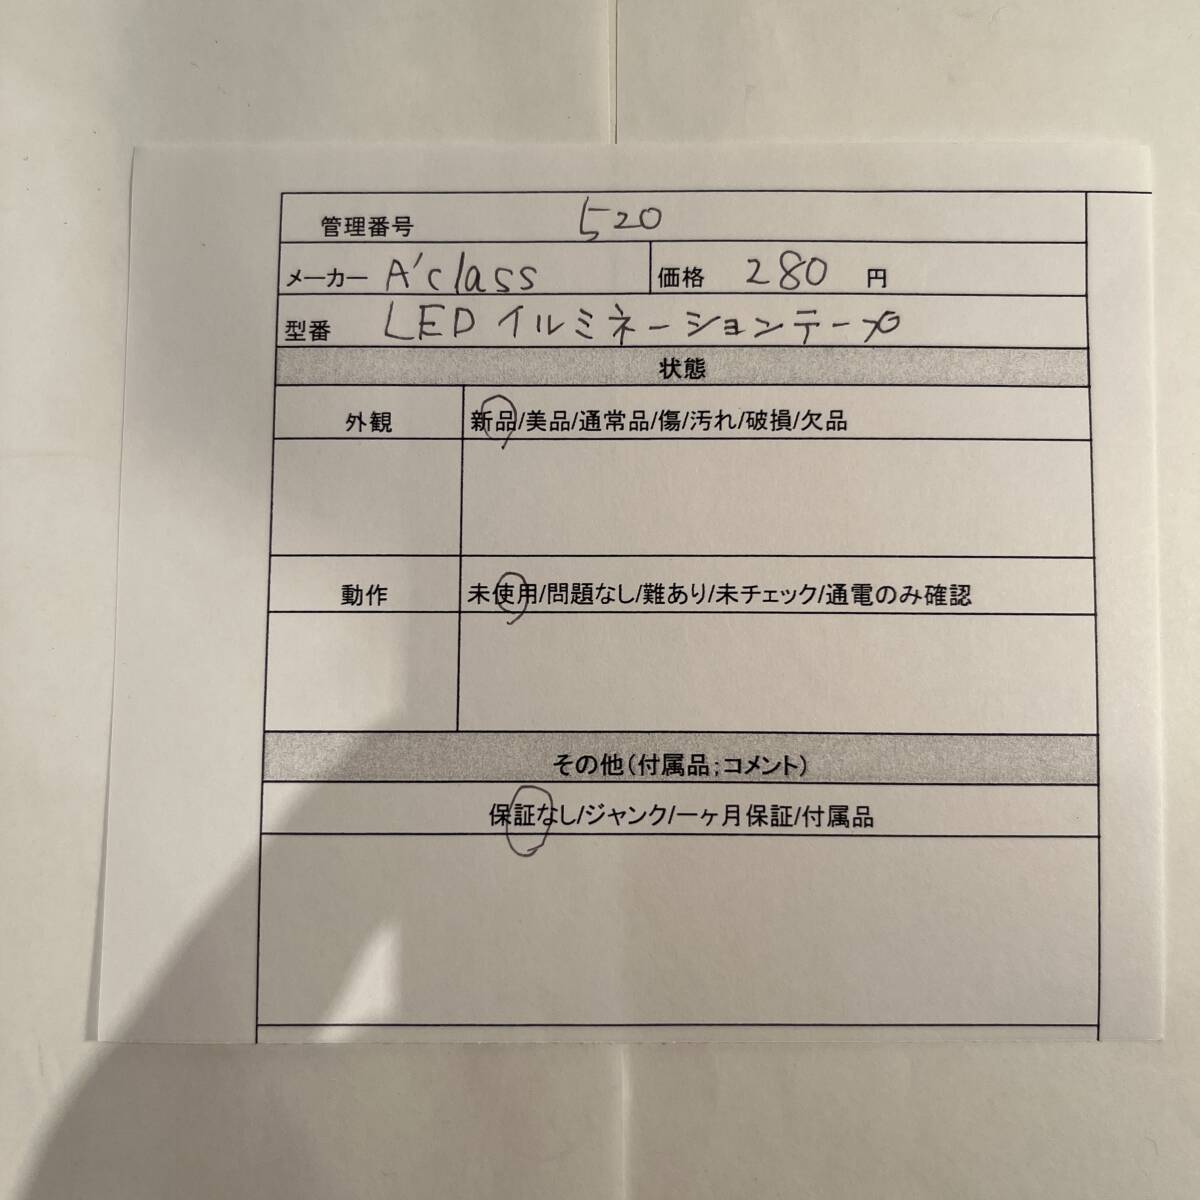 管理番号 520
メーカー A'class 価格 280 円
型番 LEDイルミネーションテープ
状態
外観 新品/美品/通常品/傷/汚れ/破損/欠品
動作 未使用/問題なし/難あり/未チェック/通電のみ確認
その他(付属品;コメント)
保証なし/ジャンク/一ヶ月保証/付属品